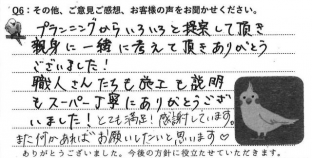 Q6：その他、ご意見ご感想、お客様の声をお聞かせください。
プランニングからいろいろと提案して頂き
親身に一緒に考えて頂きありがとう
ございました！
職人さんたちも施工も説明
もスーパー丁寧にありがとうござ
いました！とても満足！感謝しています。
また何かあればお願いしたいと思います♡
ありがとうございました。今後の方針に役立たせていただきます。